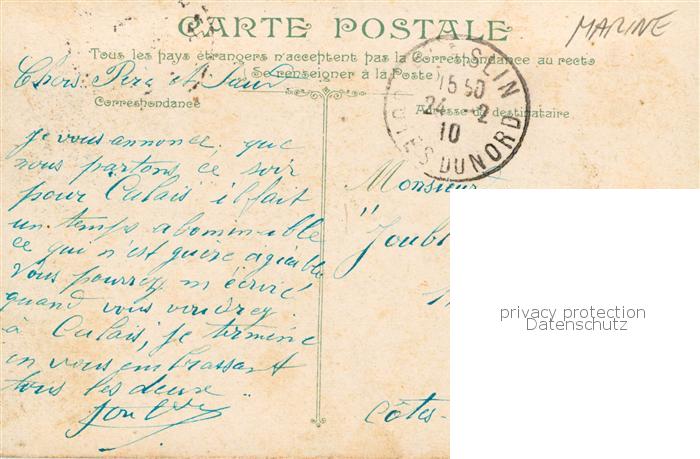 CARTE POSTALE
MARINE
Tous les pays étrangers n'acceptent pas la Correspondance au recto
(Se renseigner à la Poste)
Chers Père et Sœur
Correspondance
Adresse du destinataire
SLIN
15 50
24 - 2
10
CÔTES DU NORD
je vous annonce que
nous partons ce soir
pour Calais il fait
un temps abominable
ce qui n'est guère agréable
Vous pourrez m'écrire
quand vous voudrez
à Calais, je termine
en vous embrassant
tous les deux
Monsieur
"Joub
Côtes-
privacy protection
Datenschutz